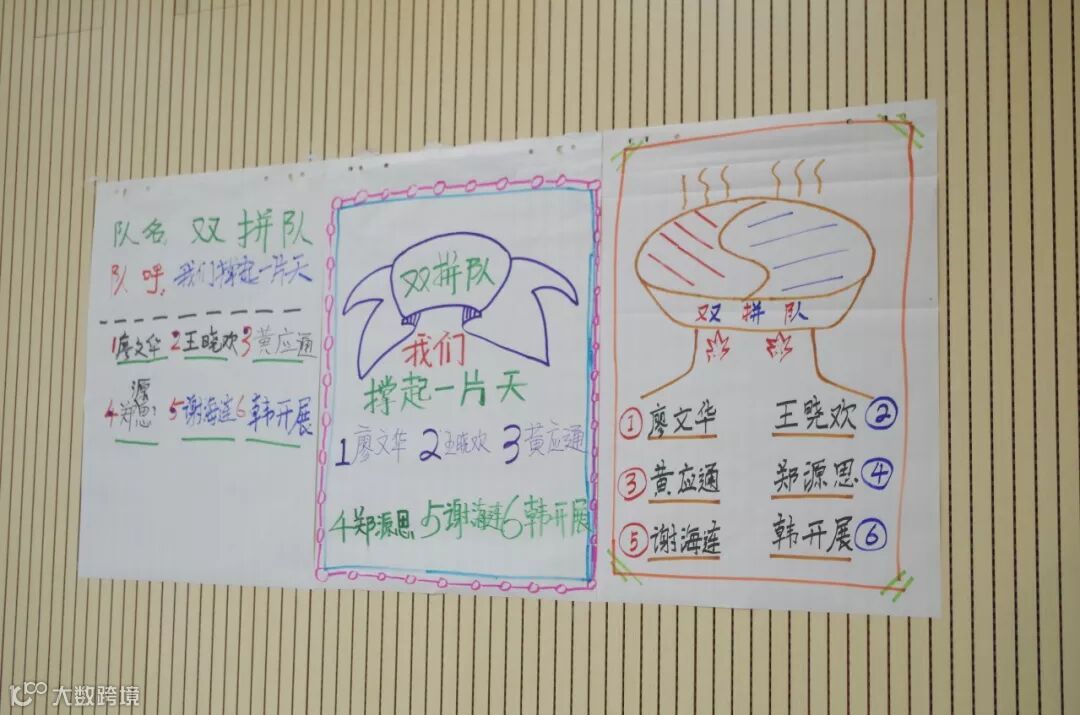 队名 双拼队
队呼 我们撑起一片天
1廖文华 2王晓欢 3黄应通
4郑源思 5谢海连 6韩开展
双拼队
我们
撑起一片天
1廖文华 2王晓欢 3黄应通
4郑源思 5谢海连 6韩开展
双拼队
①廖文华 王晓欢②
③黄应通 郑源思④
⑤谢海连 韩开展⑥
大数跨境